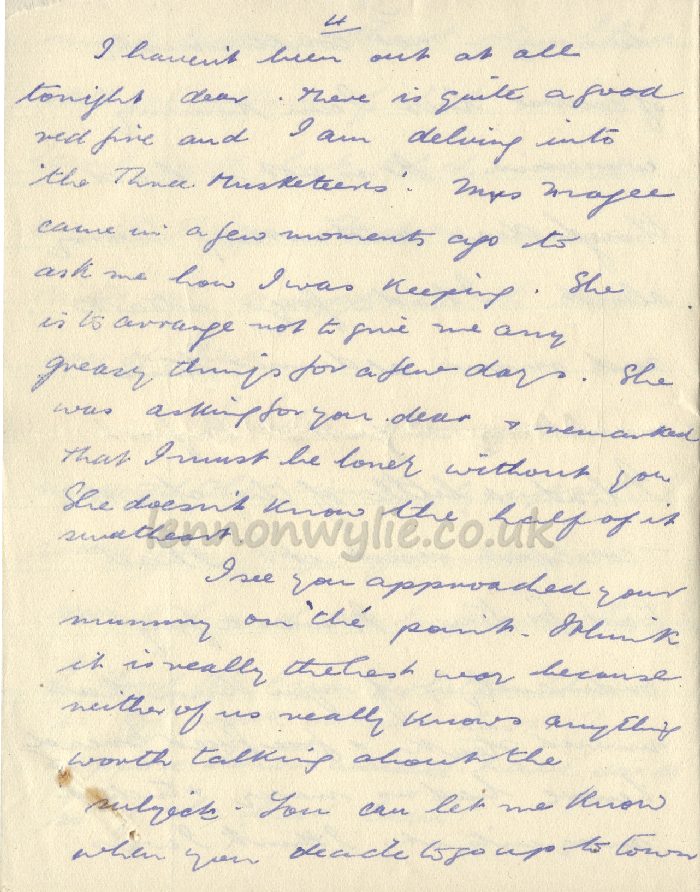 4
I haven't been out at all
tonight dear. There is quite a good
red fire and I am delving into
'the Three Musketeers'. Mrs Magee
came in a few moments ago to
ask me how I was keeping. She
is to arrange not to give me any
greasy things for a few days. She
was asking for you dear & remarked
that I must be lonely without you
She doesn't know the half of it
sweetheart
lennonwylie.co.uk
I see you approached your
mummy on 'the' point. I think
it is really the best way because
neither of us really knows anything
worth talking about the
subject. You can let me know
when you decide to go up to town